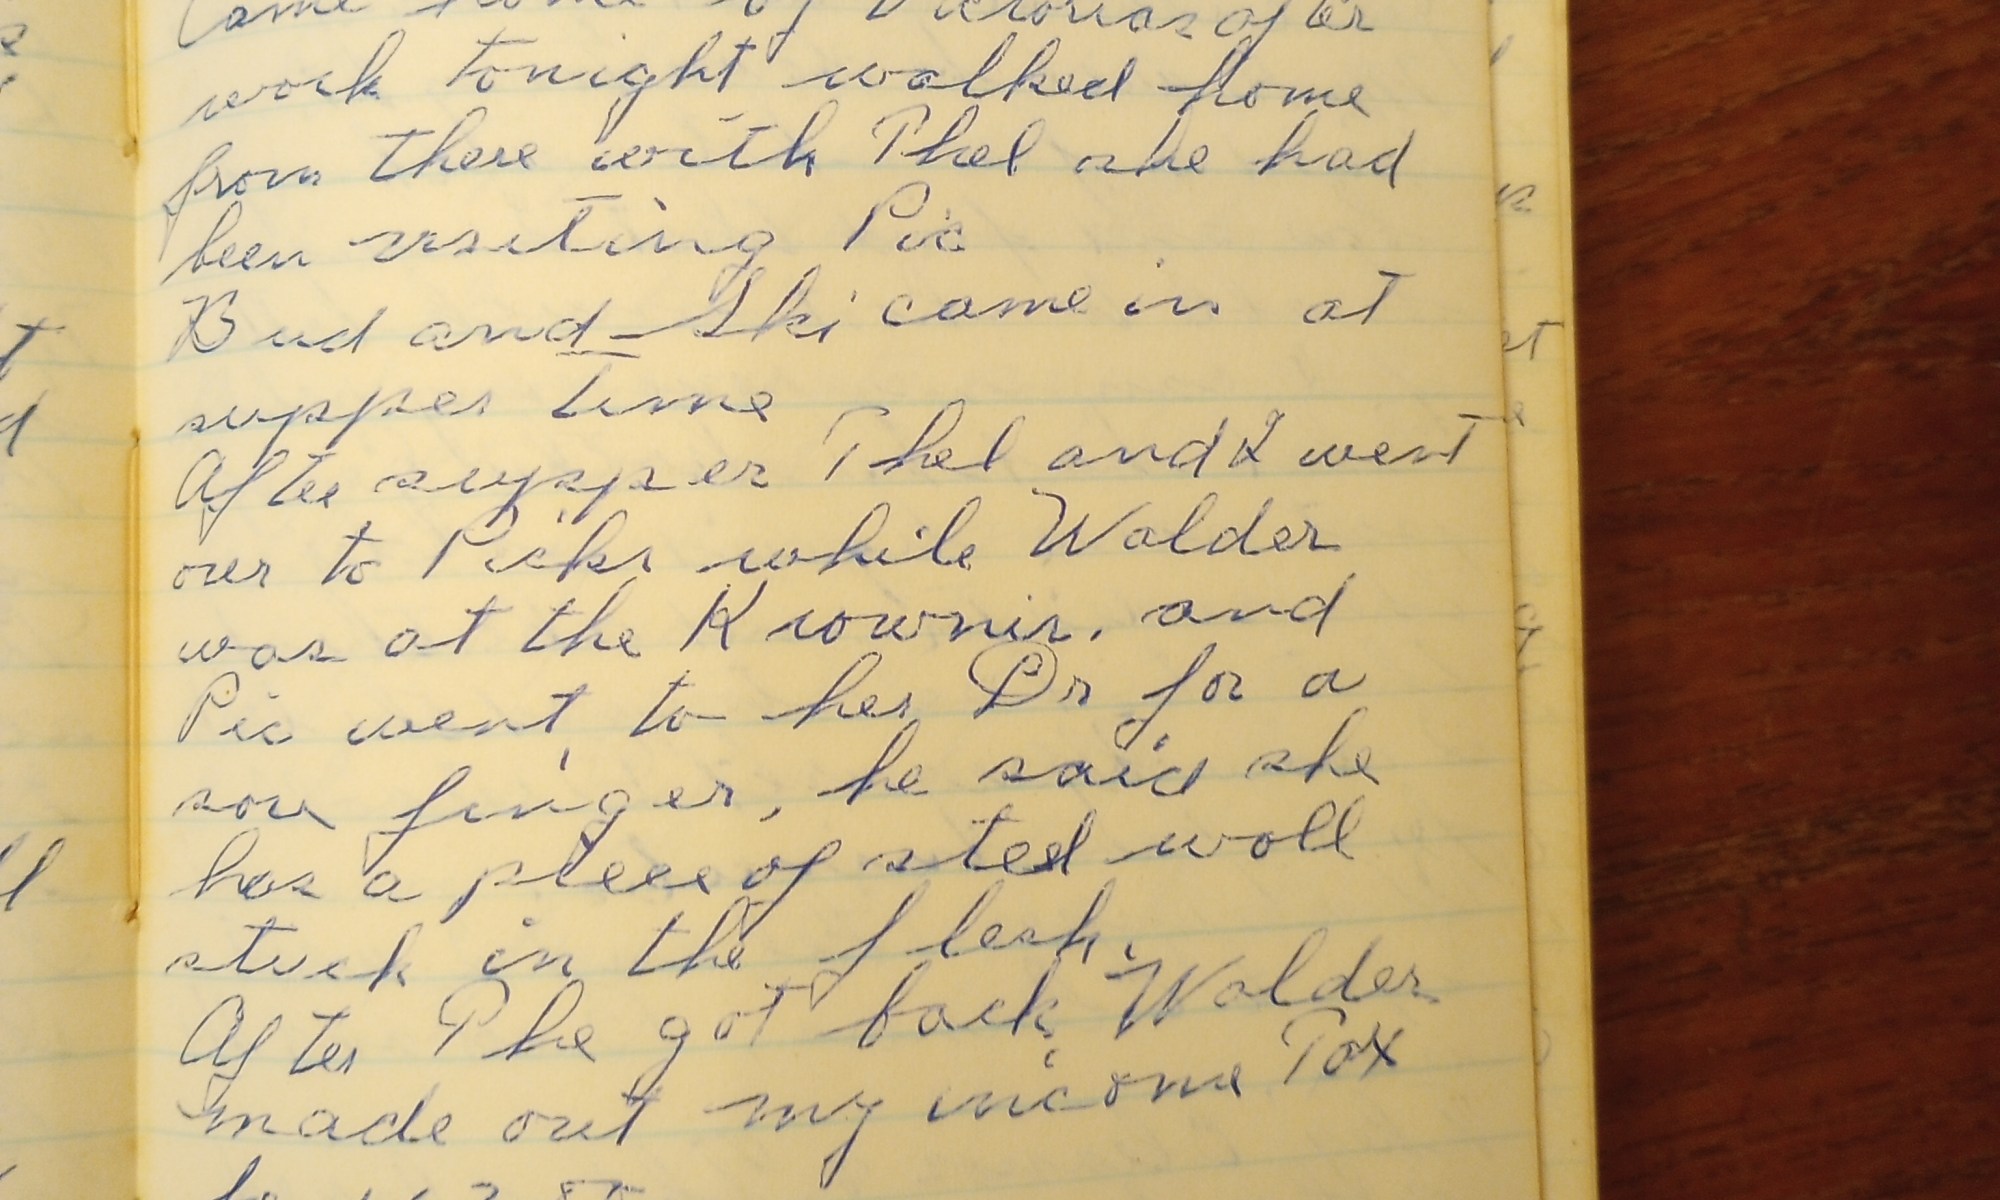 Came home by Victorias after
work tonight walked home
from there with Phel she had
been visiting Pic
Bud and Ski came in at
supper time
After supper Phel and I went
over to Picks while Walder
was at the Krownir. and
Pic went to her Dr for a
sore finger, he said she
has a pieee of steel woll
stuck in the flesh.
After Phe got back Walder
made out my income Tax